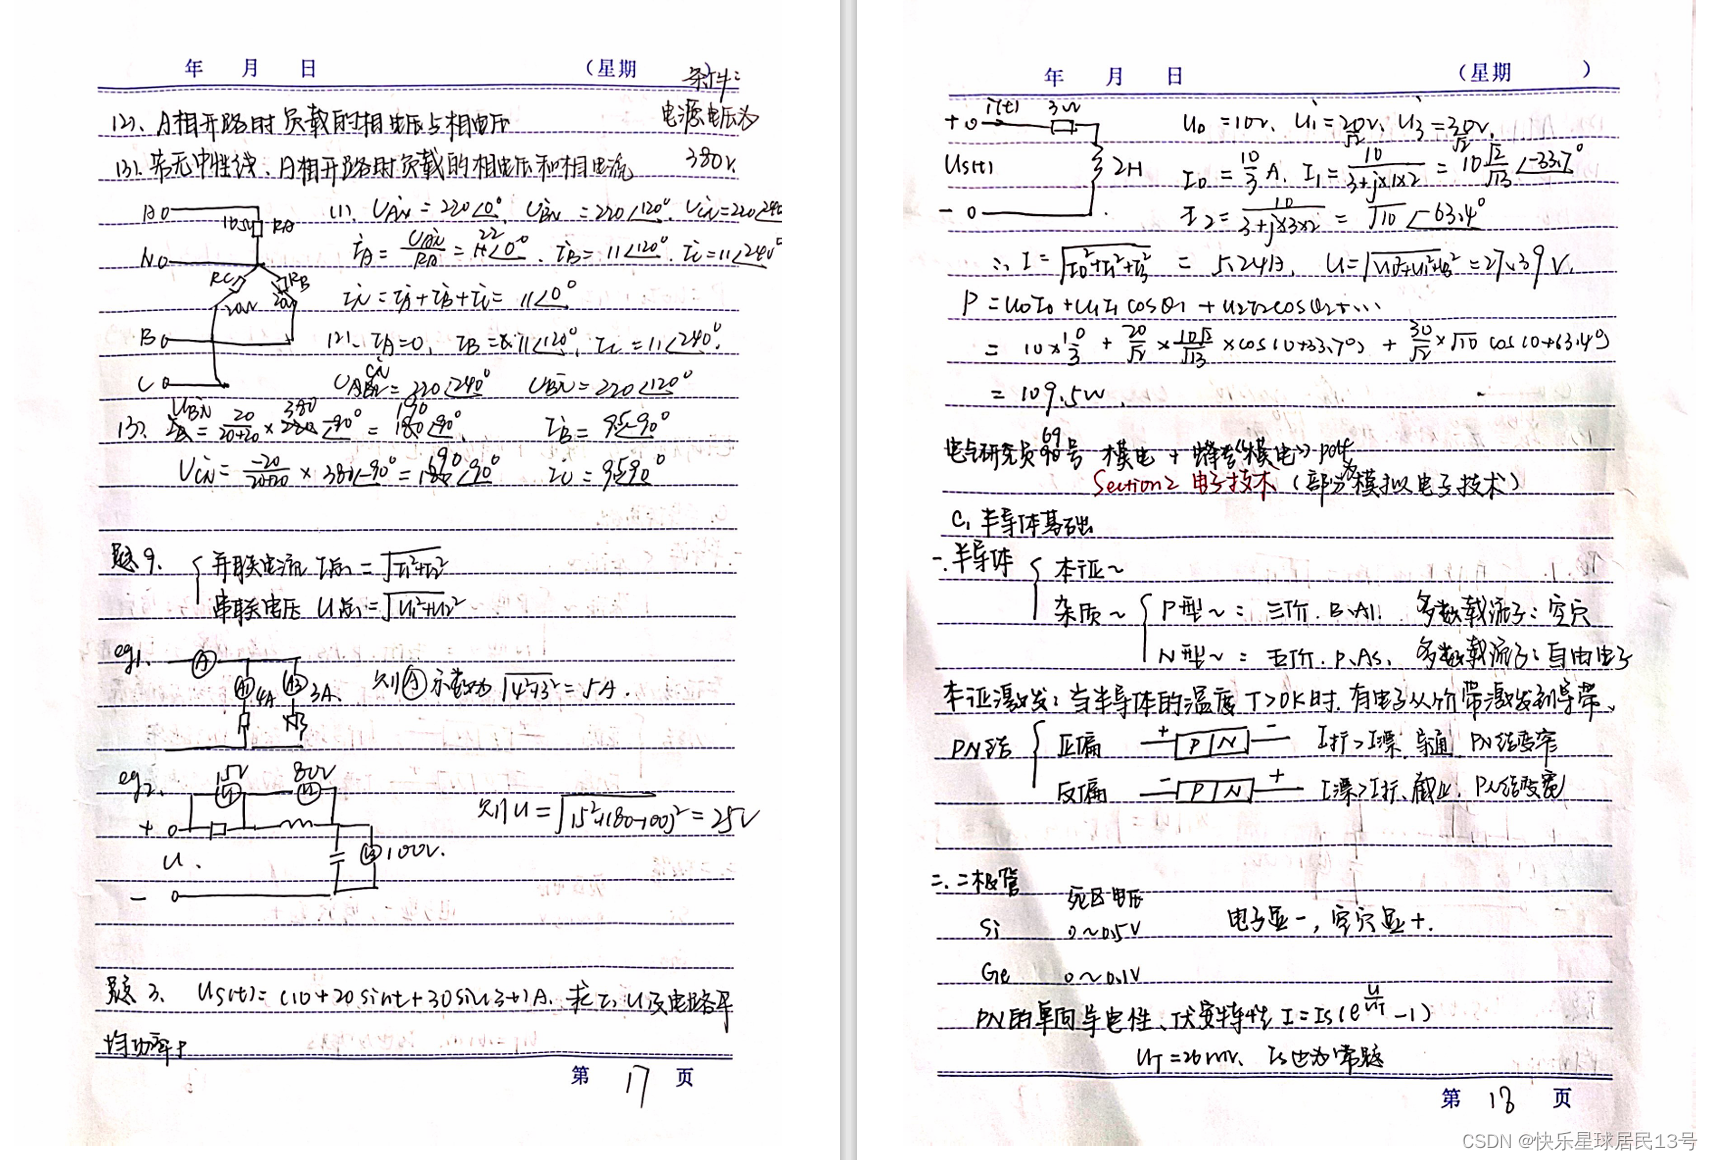 年 月 日 （星期
条件:
(2)、A相开路时负载的相电压与相电压
电源电压为
(3)、若无中性线、A相开路时负载的相电压和相电流
380V.
A
10Ω RA
N
RC RB
20Ω 20Ω
B
C
(1). UAN = 220∠0°. UBN = 220∠120°. UCN = 220∠240
IA = UAN/RA = 22∠0°. IB = 11∠120°. IC = 11∠240°
IN = IA + IB + IC = 11∠0°
(2). IA = 0, IB = 11∠120°. IC = 11∠240°.
UCN = 220∠240° UBN = 220∠120°
(3). UBN = 20/20+20 × 380∠-90° = 190∠-90°. IB = 9.5∠-90°
UCN = -20/20+20 × 380∠-90° = 190∠90° IC = 9.5∠90°
题9. 并联电流 I总 = √I1²+I2²
串联电压 U总 = √U1²+U2²
eg1. A
A1 4A A2 3A
则Ⓐ示数为 √4²+3² = 5A.
eg2. 15V 80V
+ U. -
100V.
则U = √15²+(80-100)² = 25V
题3. Us(t) = (10+20sint+30sin3t)A. 求I、U及电路平
均功率P
第 17 页
年 月 日 （星期 ）
+ i(t) 3Ω
Us(t) 2H
-
U0 = 10V. U1 = 20/√2 V. U3 = 30/√2 V.
I0 = 10/3 A. I1 = 10/3+j×1×2 = 10√2/√13 ∠-33.7°
I2 = 10/3+j×3×2 = √10 ∠-63.4°
∴ I = √I0²+I1²+I3² = 5.24A. U = √U0²+U1²+U3² = 27.39V.
P = U0I0 + U1I1cosθ1 + U2I2cosθ2+…
= 10×10/3 + 20/√2 × 10√2/√13 × cos(0+33.7°) + 30/√2 × √10 cos(0+63.4°)
= 109.5W.
研究员69号 模电 + 蜂考《模电》pdf
Section2 电子技术（部分为模拟电子技术）
C1 半导体基础
一. 半导体 本证~
杂质~ P型~: 三价. B、Al. 多数载流子: 空穴
N型~: 五价. P、As. 多数载流子: 自由电子
本证激发: 当半导体的温度T>0K时. 有电子从价带激发到导带、
PN结 正偏 + P N - I扩>I漂. 导通. PN结变窄
反偏 - P N + I漂>I扩. 截止. PN结变宽
二. 二极管
死区电压
Si 0~0.5V
电子显-, 空穴显+.
Ge 0~0.1V
PN的单向导电性、伏安特性 I = Is(e^U/UT -1)
UT = 26mV. Is也为常
第 18 页
CSDN @快乐星球居民13号